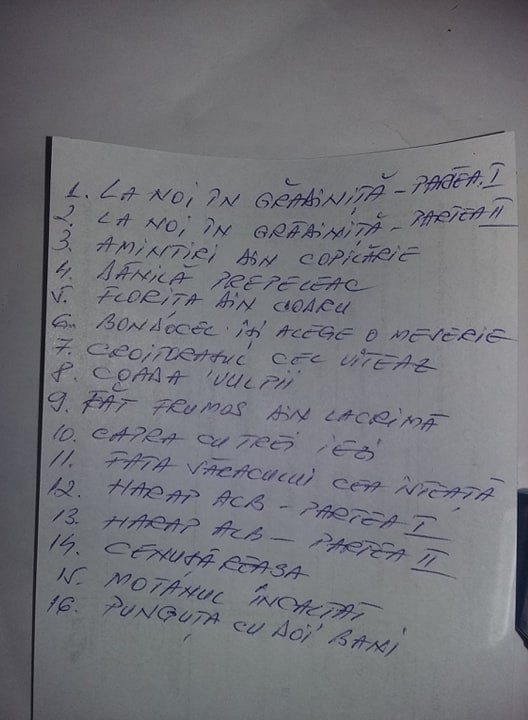 1. LA NOI ÎN GRĂDINIȚĂ - PARTEA.I
2. LA NOI ÎN GRĂDINIȚĂ - PARTEA II
3. AMINTIRI DIN COPILĂRIE
4. DĂNILĂ PREPELEAC
5. FLORIȚA DIN CODRU
6. BONDOCEL IȘI ALEGE O MESERIE
7. CROITORAȘUL CEL VITEAZ
8. COADA VULPII
9. FĂT FRUMOS DIN LACRIMĂ
10. CAPRA CU TREI IEZI
11. FATA SĂRACULUI CEA ISTEAȚĂ
12. HARAP ALB - PARTEA I
13. HARAP ALB - PARTEA II
14. CENUȘĂREASA
15. MOTANUL ÎNCALTAT
16. PUNGUȚA CU DOI BANI